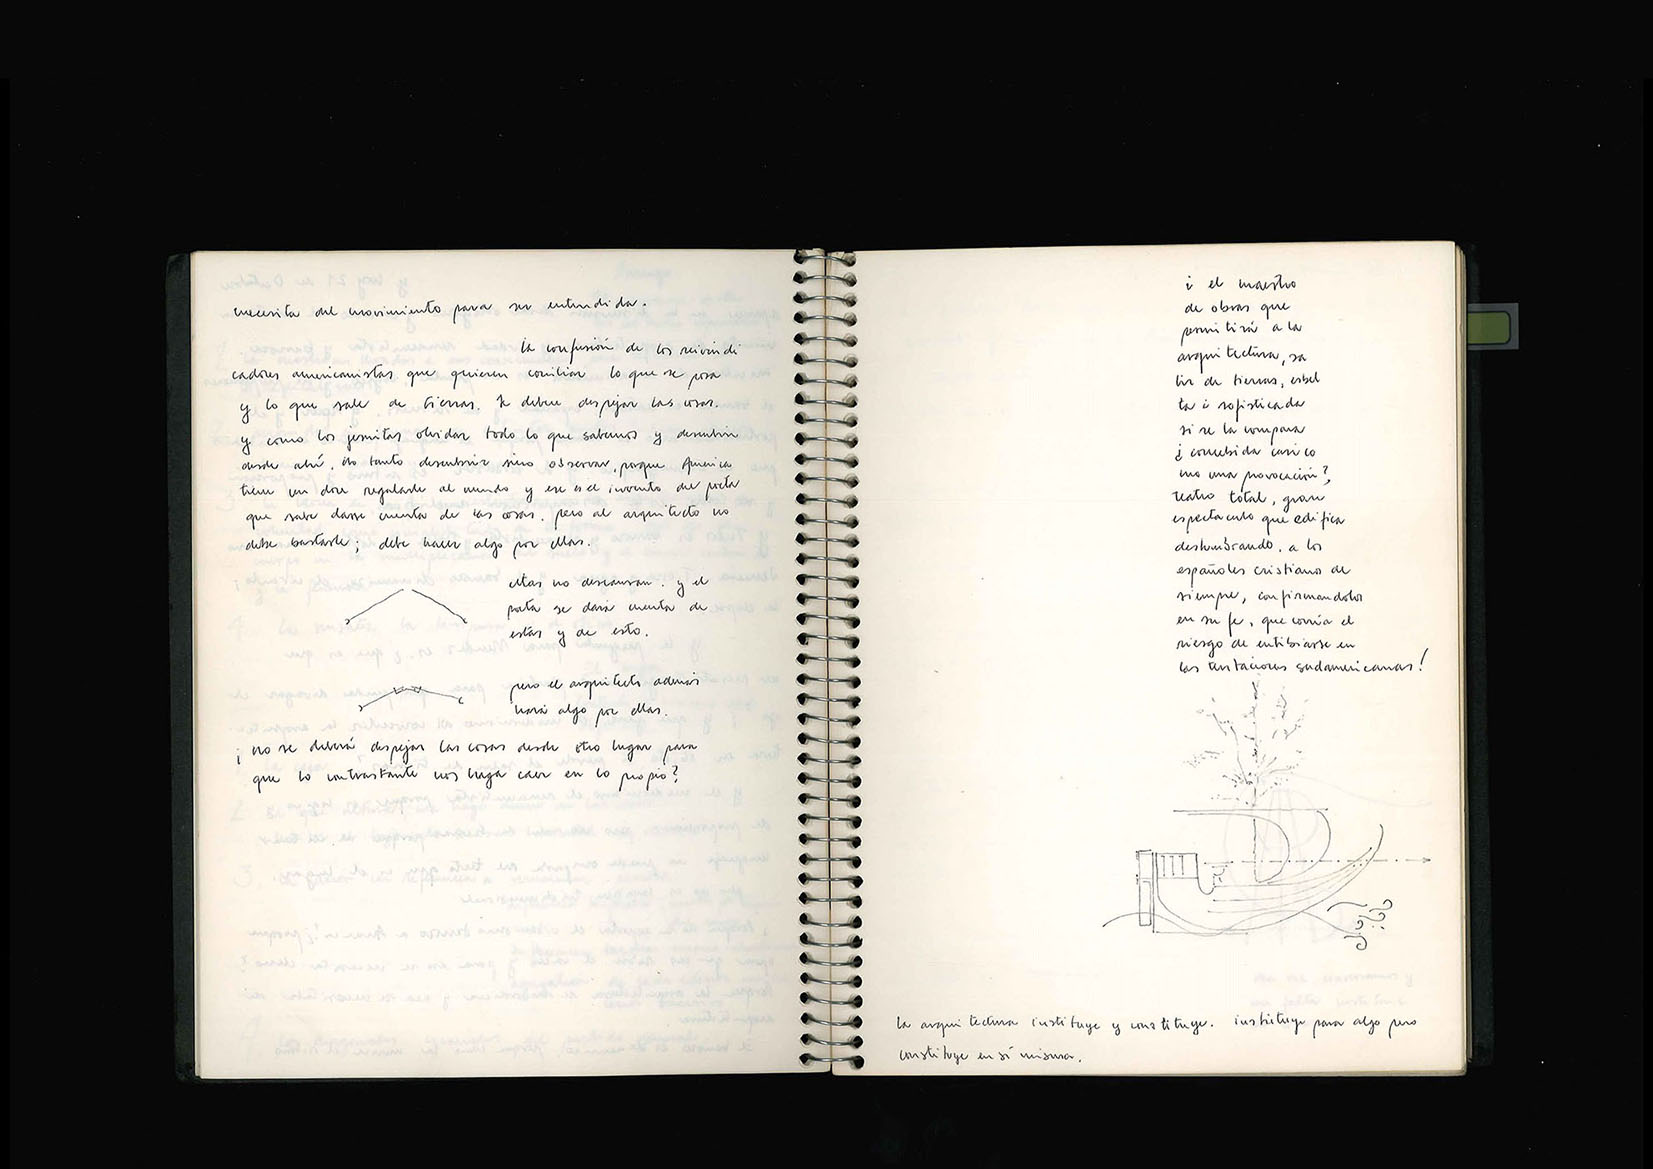 necesita del movimiento para ser entendida.
la confusión de los reivindi
cadores americanistas que quieren conciliar lo que se posa
y lo que sale de tierras. Se debiere despejar las cosas.
y como los jesuitas olvidar todo lo que sabemos y descubrir
desde ahí. No tanto descubrir sino observar, porque América
tiene un don regalarle al mundo y ese es el invento del poeta
que sabe darse cuenta de las cosas. pero al arquitecto no
debe bastarle; debe hacer algo por ellas.
ellas no descansan. y el
poeta se dará cuenta de
estas y de esto.
pero el arquitecto además
hará algo por ellas.
¿no se deberá despejar las cosas desde otro lugar para
que lo contrastante nos haga caer en lo propio?
¡ el maestro
de obras que
permitirá a la
arquitectura, sa
lir de tierras, esbel
ta i sofisticada
si se la compara
¿ concebida casi co
mo una provocación?,
teatro total, gran
espectaculo que edifica
deslumbrando. a los
españoles cristianos de
siempre, confirmandolos
en su fe, que corría el
riesgo de entibiarse en
las tentaciones sudamericanas!
la arquitectura instituye y constituye. instituye para algo pero
constituye en sí misma.